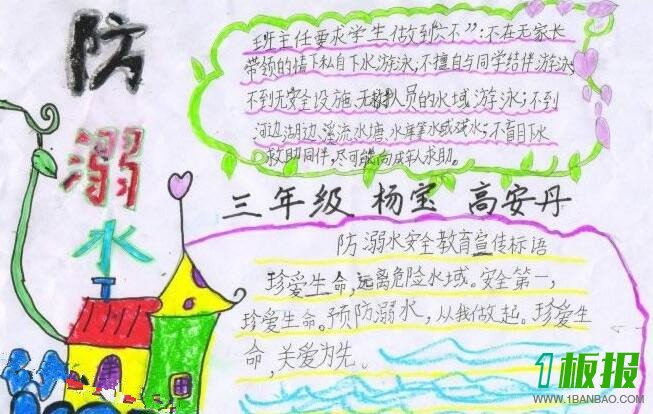 防溺水
班主任要求学生做到"六不":不在无家长
带领的情下私自下水游泳;不擅自与同学结伴游泳;
不到无安全设施、无救护人员的水域游泳;不到
河边湖边溪流水塘、水库等水或戏水;不盲目下水
救助同伴,尽可能向成人求助。
三年级 杨宝 高安丹
防溺水安全教育宣传标语
珍爱生命,远离危险水域。安全第一,
珍爱生命。预防溺水,从我做起。珍爱生
命,关爱为先。
1板报
WWW.1BANBAO.COM